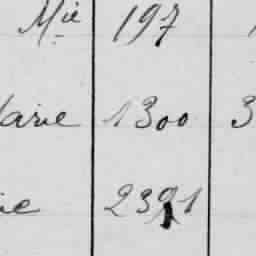 Mie 197
Marie 1300 3
ie 2391